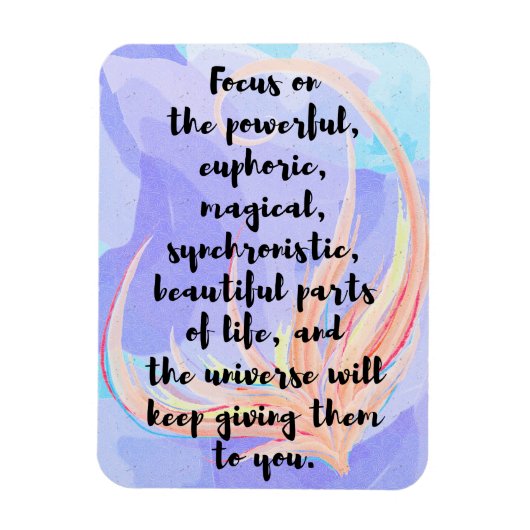 Focus on
the powerful,
euphoric,
magical,
synchronistic,
beautiful parts
of life, and
the universe will
keep giving them
to you.